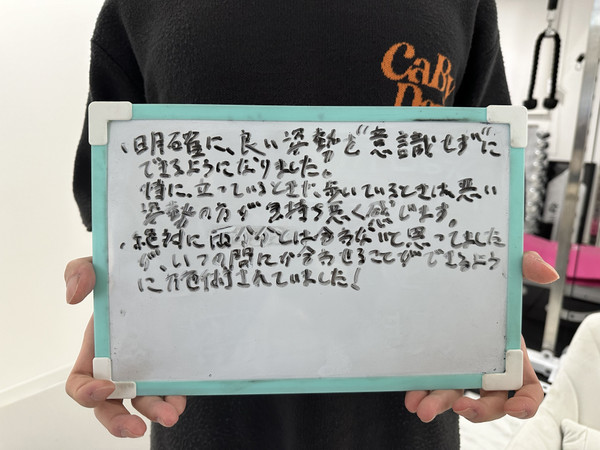 CaBr
・明確に、良い姿勢を"意識せず"に
できるようになりました。
特に、立っているときだ、歩いているときは悪い
姿勢の方が気持ち悪く感じます。
・絶対に
は合わないと思ってました
が、いつの間にか合わせることができるよう
に
されていました!